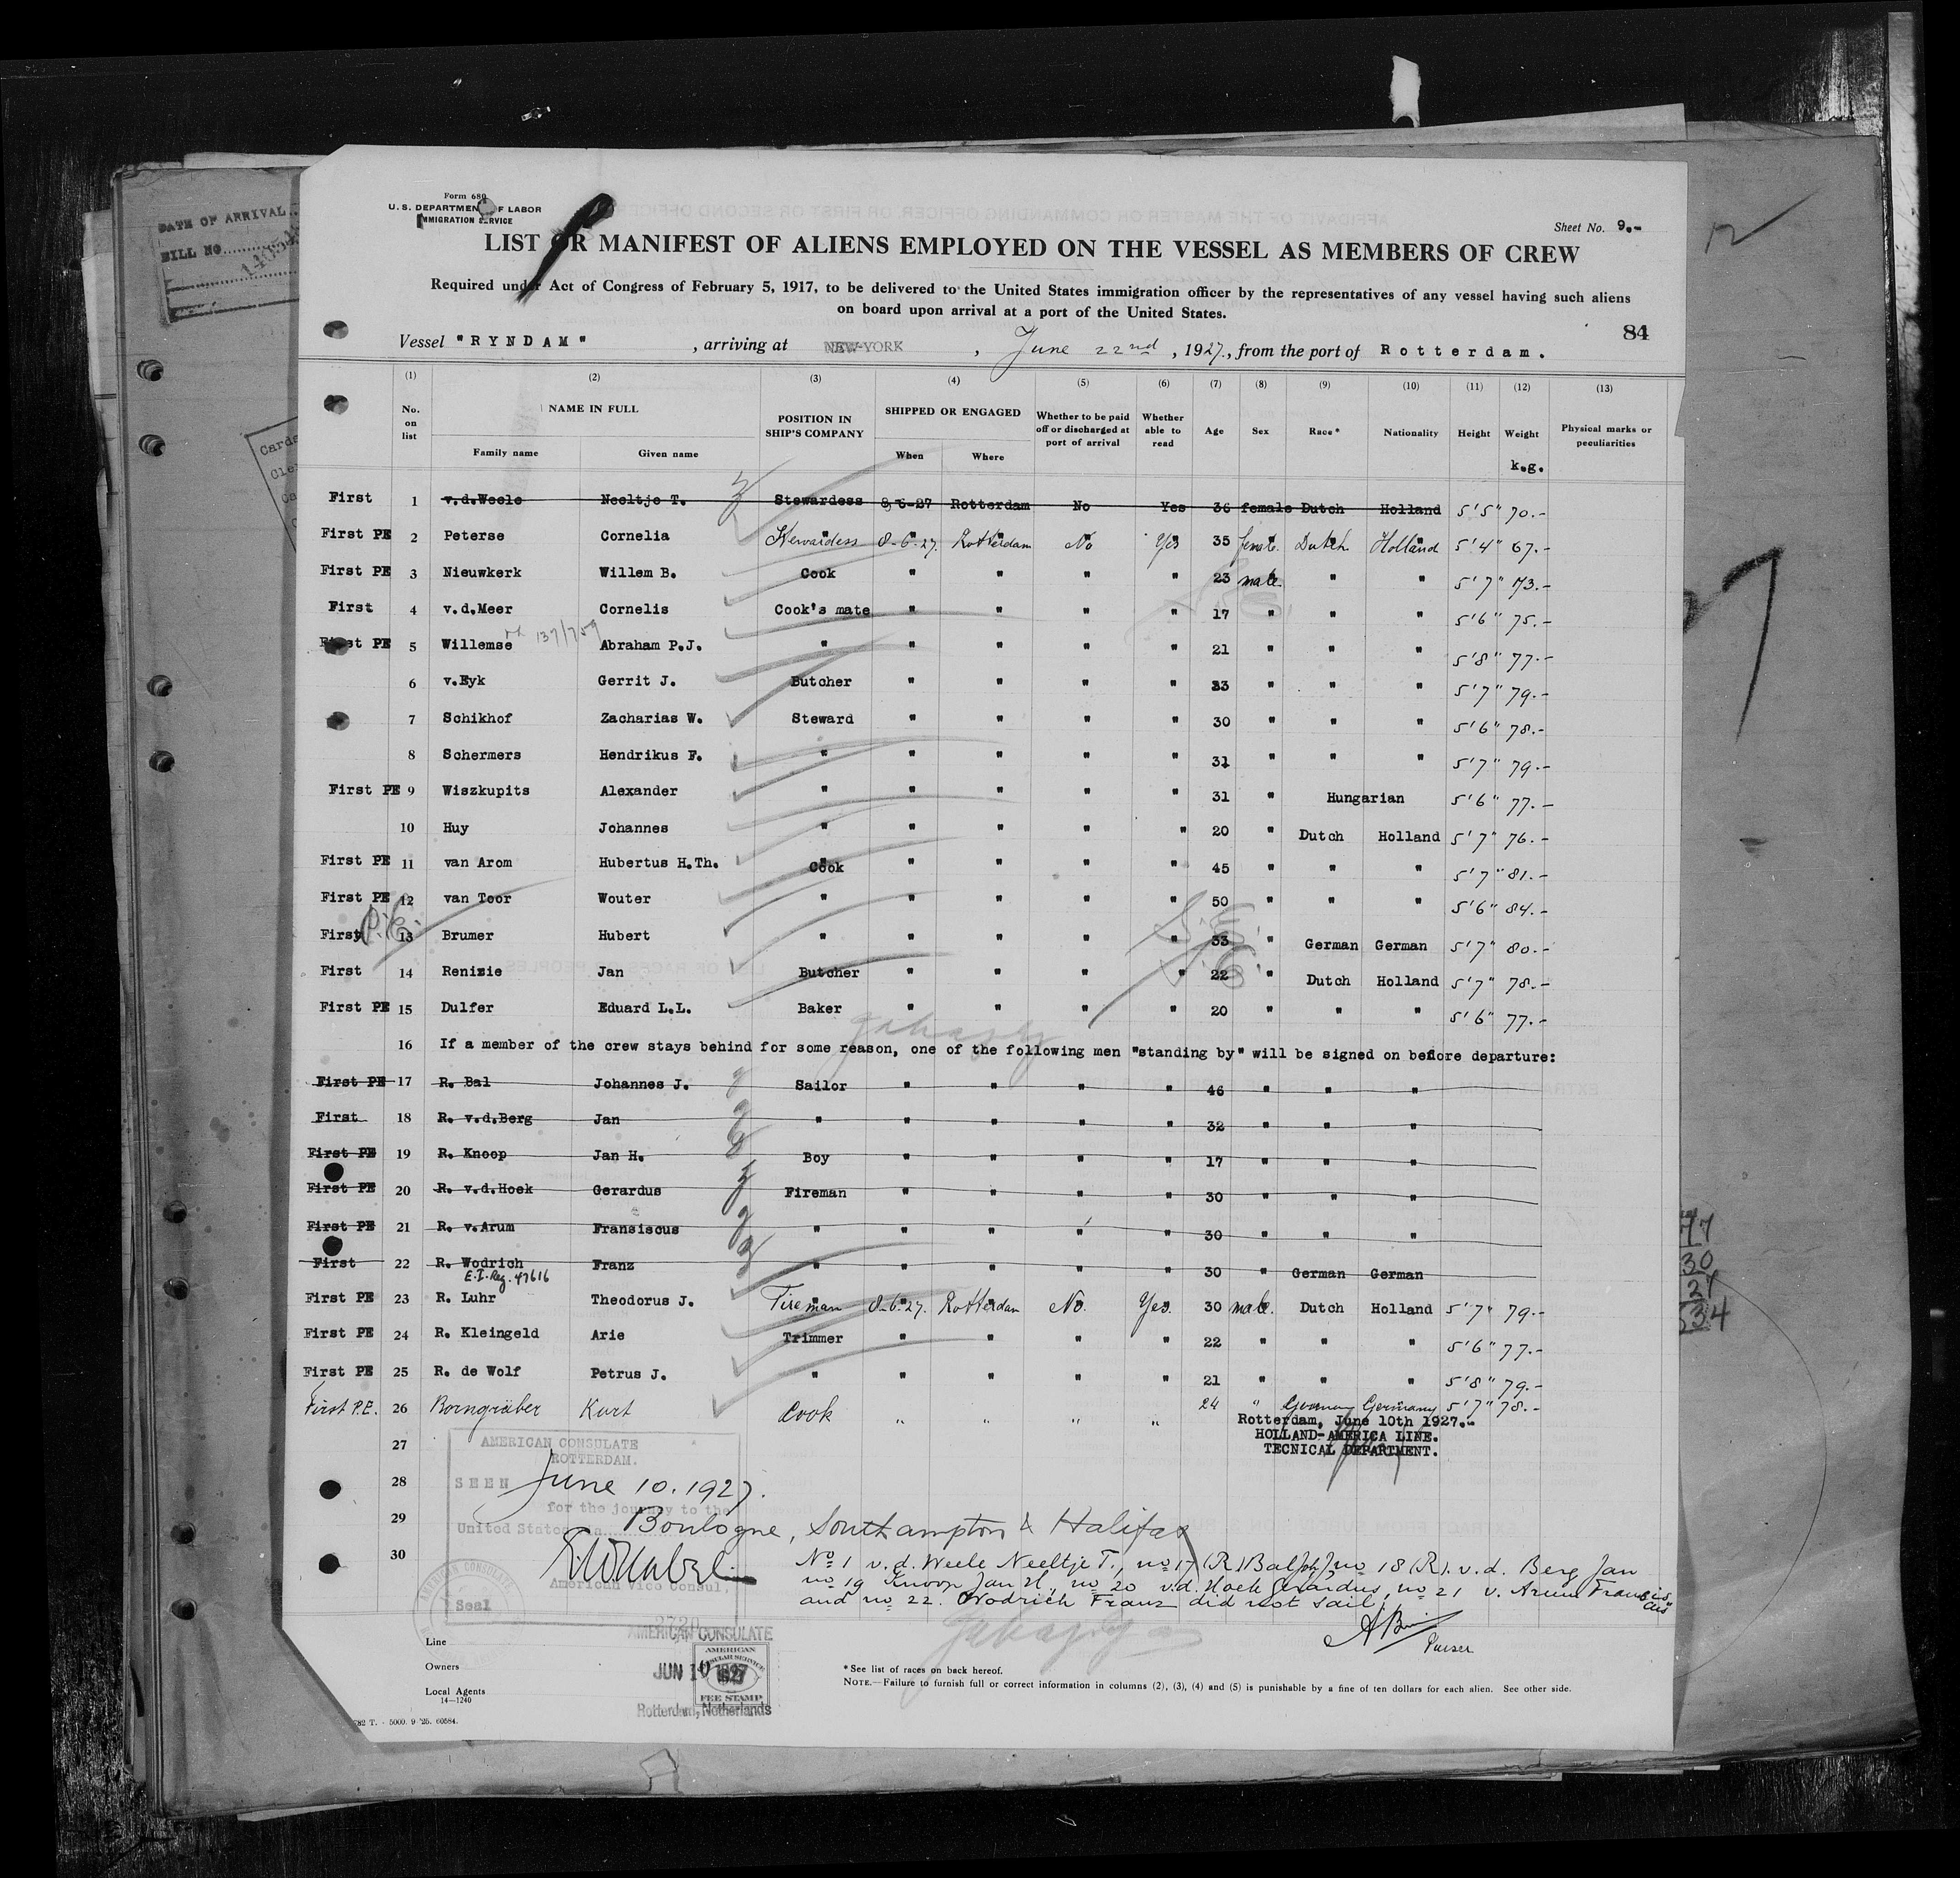 DATE OF ARRIVAL
BILL NO
Form 689
U.S. DEPARTMENT OF LABOR
IMMIGRATION SERVICE
Sheet No. 9.-
LIST OR MANIFEST OF ALIENS EMPLOYED ON THE VESSEL AS MEMBERS OF CREW
Required under Act of Congress of February 5, 1917, to be delivered to the United States immigration officer by the representatives of any vessel having such aliens
on board upon arrival at a port of the United States.
84
Vessel "RYNDAM", arriving at NEW-YORK, June 22nd, 1927, from the port of Rotterdam.
(1) (2) (3) (4) (5) (6) (7) (8) (9) (10) (11) (12) (13)
No. on list NAME IN FULL Family name Given name POSITION IN SHIP'S COMPANY SHIPPED OR ENGAGED When Where Whether to be paid off or discharged at port of arrival Whether able to read Age Sex Race* Nationality Height Weight k.g. Physical marks or peculiarities
First 1 v.d.Weele Neeltje T. Stewardess 8-6-27 Rotterdam No Yes 36 female Dutch Holland 5'5" 70.-
First PE 2 Peterse Cornelia Stewardess 8-6-27. Rotterdam No Yes 35 female. Dutch Holland 5'4" 67.-
First PE 3 Nieuwkerk Willem B. Cook " " " " 23 male " " 5'7" 73.-
First 4 v.d.Meer Cornelis Cook's mate " " " " 17 " " " 5'6" 75.-
First PE 5 Willemse 137/759 Abraham P.J. " " " " " 21 " " " 5'8" 77.-
6 v.Eyk Gerrit J. Butcher " " " " 23 " " " 5'7" 79.-
7 Schikhof Zacharias W. Steward " " " " 30 " " " 5'6" 78.-
8 Schermers Hendrikus F. " " " " " 31 " " " 5'7" 79.-
First PE 9 Wiszkupits Alexander " " " " " 31 " Hungarian 5'6" 77.-
10 Huy Johannes " " " " " 20 " Dutch Holland 5'7" 76.-
First PE 11 van Arom Hubertus H.Th. Cook " " " " 45 " " " 5'7" 81.-
First PE 12 van Toor Wouter " " " " " 50 " " " 5'6" 84.-
First P.E. 13 Brumer Hubert " " " " " 33 " German German 5'7" 80.-
First 14 Renizie Jan Butcher " " " " 22 " Dutch Holland 5'7" 78.-
First PE 15 Dulfer Eduard L.L. Baker " " " " 20 " " " 5'6" 77.-
16 If a member of the crew stays behind for some reason, one of the following men "standing by" will be signed on before departure:
First PE 17 R. Bal Johannes J. Sailor " " " " 46 " " "
First 18 R. v.d.Berg Jan " " " " " 32 " " "
First PE 19 R. Knoop Jan H. Boy " " " " 17 " " "
First PE 20 R. v.d.Hoek Gerardus Fireman " " " " 30 " " "
First PE 21 R. v.Arum Fransiscus " " " " " 30 " " "
First 22 R. Wodrich Franz " " " " " 30 " German German
E.I. Reg. 47616
First PE 23 R. Luhr Theodorus J. Fireman 8-6-27. Rotterdam No. Yes. 30 male. Dutch Holland 5'7" 79.-
First PE 24 R. Kleingeld Arie Trimmer " " " " 22 " " " 5'6" 77.-
First PE 25 R. de Wolf Petrus J. " " " " " 21 " " " 5'8" 79.-
First P.E. 26 Borngräber Kurt Cook " " " " 24 " German Germany 5'7" 78.-
Rotterdam, June 10th 1927.-
HOLLAND-AMERICA LINE.
TECNICAL DEPARTMENT.
27
28
29
30
AMERICAN CONSULATE
ROTTERDAM.
SEEN June 10. 1927.
for the journey to the
United States
Boulogne, Southampton & Halifax
American Vice Consul,
Seal
No 1 v.d. Weele Neeltje T., no 17 (R) Bal Joh J no 18 (R). v.d. Berg Jan
no 19 Knoop Jan H., no 20 v.d. Hoek Gerardus, no 21 v. Arum Francis cus
and no 22. Wodrich Franz did not sail.
Purser
2720
AMERICAN CONSULATE
JUN 10 1927
Rotterdam, Netherlands
AMERICAN
CONSULAR SERVICE
FEE STAMP
Line
Owners
Local Agents
14—1240
*See list of races on back hereof.
NOTE.—Failure to furnish full or correct information in columns (2), (3), (4) and (5) is punishable by a fine of ten dollars for each alien. See other side.
782 T. - 5000. 9-'25. 60584.